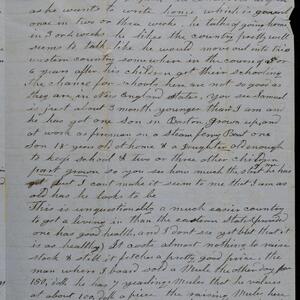 as he wants to write home, which is generally
once in two or three weeks. he talks of going home
in 3 or 4 weeks. he likes the country pretty well
seems to talk like he would move out into this
western country somewhere in the course of 5 or
6 years after his children get their schooling
The chance for schooling here are not so good as
they are in New England States. You see Samuel
is just about 3 month younger than I am and
he has got one son in Boston grown up and
at work as fireman on a steam ferry Boat one
Son 18 years old at home & a Daughter old enough
to keep school & two or three other children
part grown so you see how much the start he has
got but I cant make it seem to me that I am as
old as he looks to be
This is unquestionably a much easier country
to get a living in than the eastern States provided
one has good health, and I dont see yet but that it
is as healthy. It costs almost nothing to raise
stock & still it fetches a pretty good price. the
man where I board sold a Mule the other day for
150, doll. he has 7 yearling Mules that he values
at about 100 doll a piece. the raising Mules here